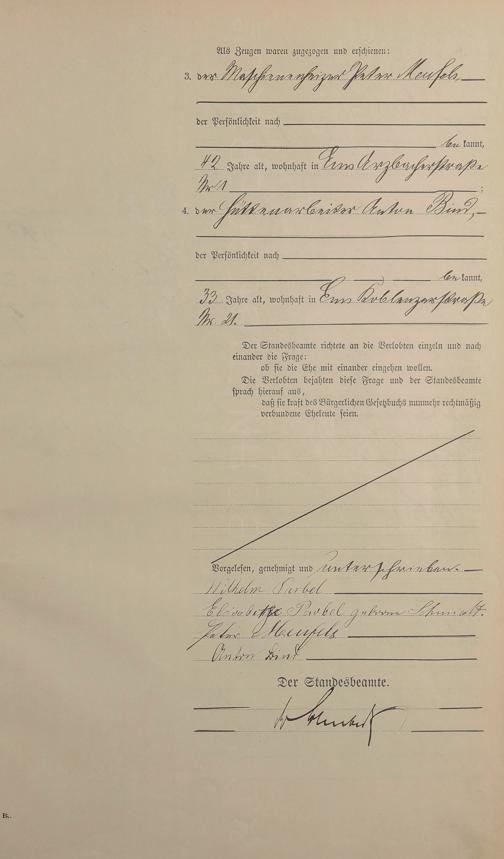 Als Zeugen waren zugezogen und erschienen:
3. der Maschinenheizer Peter Meufels
der Persönlichkeit nach
bekannt,
42 Jahre alt, wohnhaft in Ems Arzbacherstraße
Nr 1 ;
4. der Hüttenarbeiter Anton Bind,
der Persönlichkeit nach
bekannt,
33 Jahre alt, wohnhaft in Ems Koblenzerstraße
Nr. 21.
Der Standesbeamte richtete an die Verlobten einzeln und nach
einander die Frage:
ob sie die Ehe mit einander eingehen wollen.
Die Verlobten bejahten diese Frage und der Standesbeamte
sprach hierauf aus,
daß sie kraft des Bürgerlichen Gesetzbuchs nunmehr rechtmäßig
verbundene Eheleute seien.
Vorgelesen, genehmigt und unterschrieben.
Wilhelm
Elisabethe geborene
Peter Meufels
Anton Bind
Der Standesbeamte.
B.